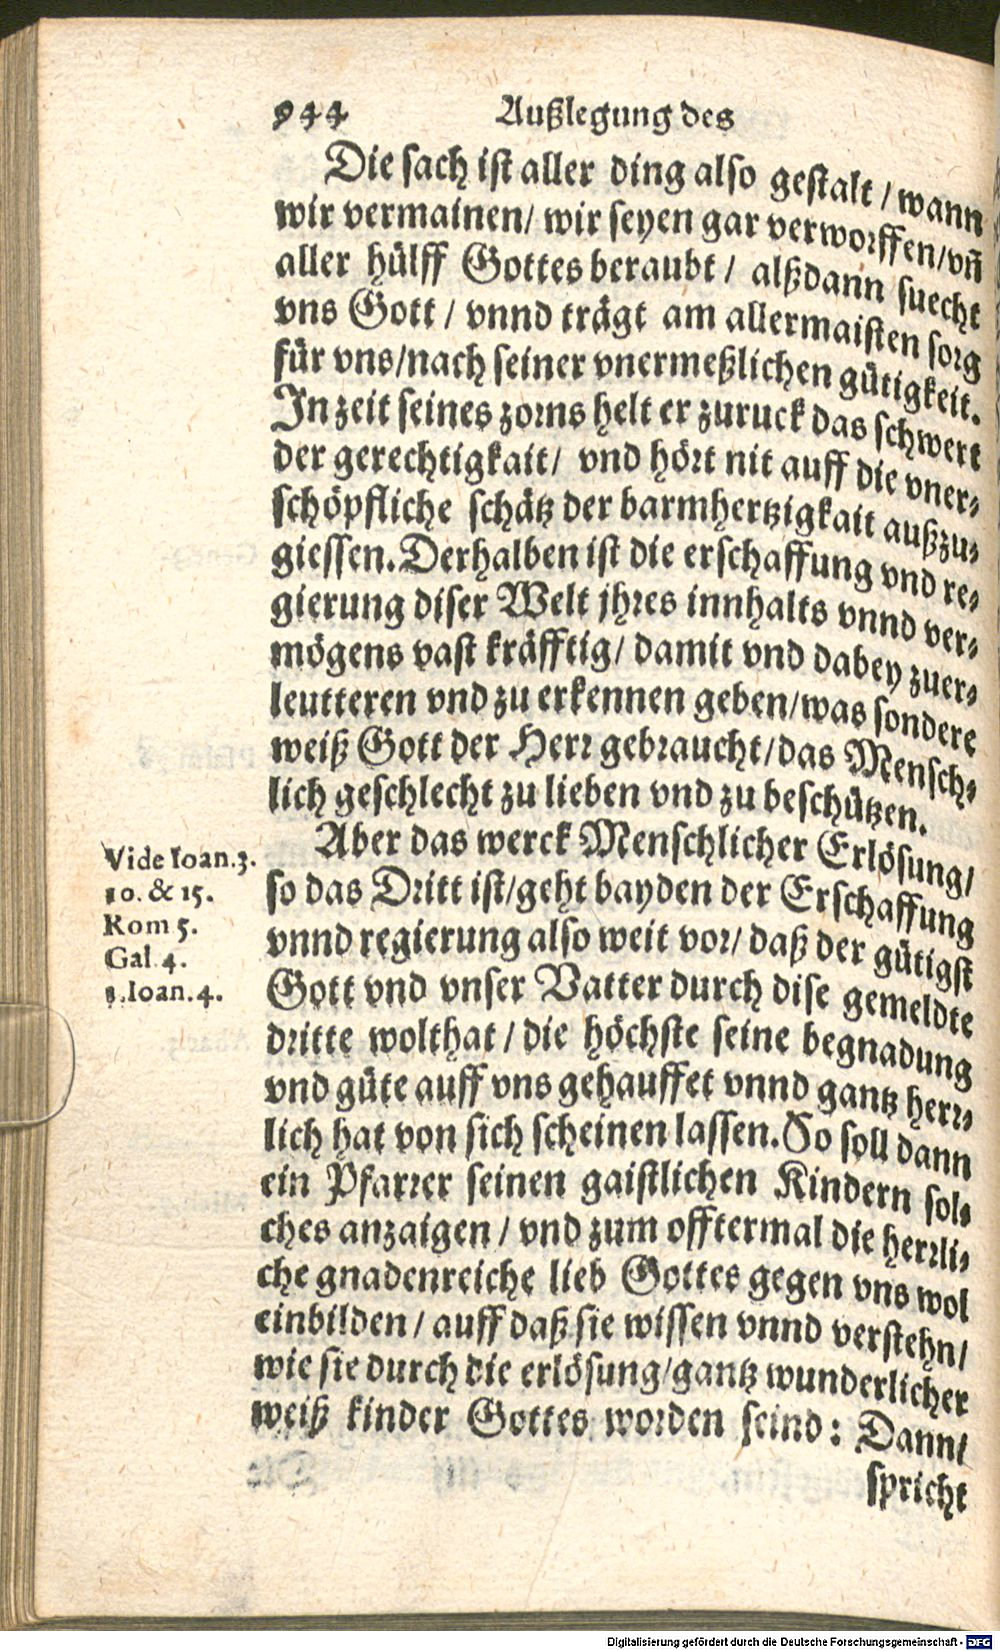 944 Außlegung des
Die sach ist aller ding also gestalt / wann
wir vermainen / wir seyen gar verworffen / vñ
aller hülff Gottes beraubt / alßdann suecht
vns Gott / vnnd trägt am allermaisten sorg
für vns / nach seiner vnermeßlichen gütigkeit.
In zeit seines zorns helt er zuruck das schwert
der gerechtigkait / vnd hört nit auff die vner-
schöpfliche schätz der barmhertzigkait außzu-
giessen. Derhalben ist die erschaffung vnd re-
gierung diser Welt jhres innhalts vnnd ver-
mögens vast kräfftig / damit vnd dabey zuer-
leutteren vnd zu erkennen geben / was sondere
weiß Gott der Herr gebraucht / das Mensch-
lich geschlecht zu lieben vnd zu beschützen.
Aber das werck Menschlicher Erlösung /
so das Dritt ist / geht bayden der Erschaffung
vnnd regierung also weit vor / daß der gütigst
Gott vnd vnser Vatter durch dise gemeldte
dritte wolthat / die höchste seine begnadung
vnd güte auff vns gehauffet vnnd gantz herr-
lich hat von sich scheinen lassen. So soll dann
ein Pfarrer seinen gaistlichen Kindern sol-
ches anzaigen / vnd zum offtermal die herrli-
che gnadenreiche lieb Gottes gegen vns wol
einbilden / auff daß sie wissen vnnd verstehn /
wie sie durch die erlösung / gantz wunderlicher
weiß kinder Gottes worden seind : Dann /
spricht
Vide Ioan. 3.
10. & 15.
Rom 5.
Gal. 4.
1. Ioan. 4.
Digitalisierung gefördert durch die Deutsche Forschungsgemeinschaft - DFG